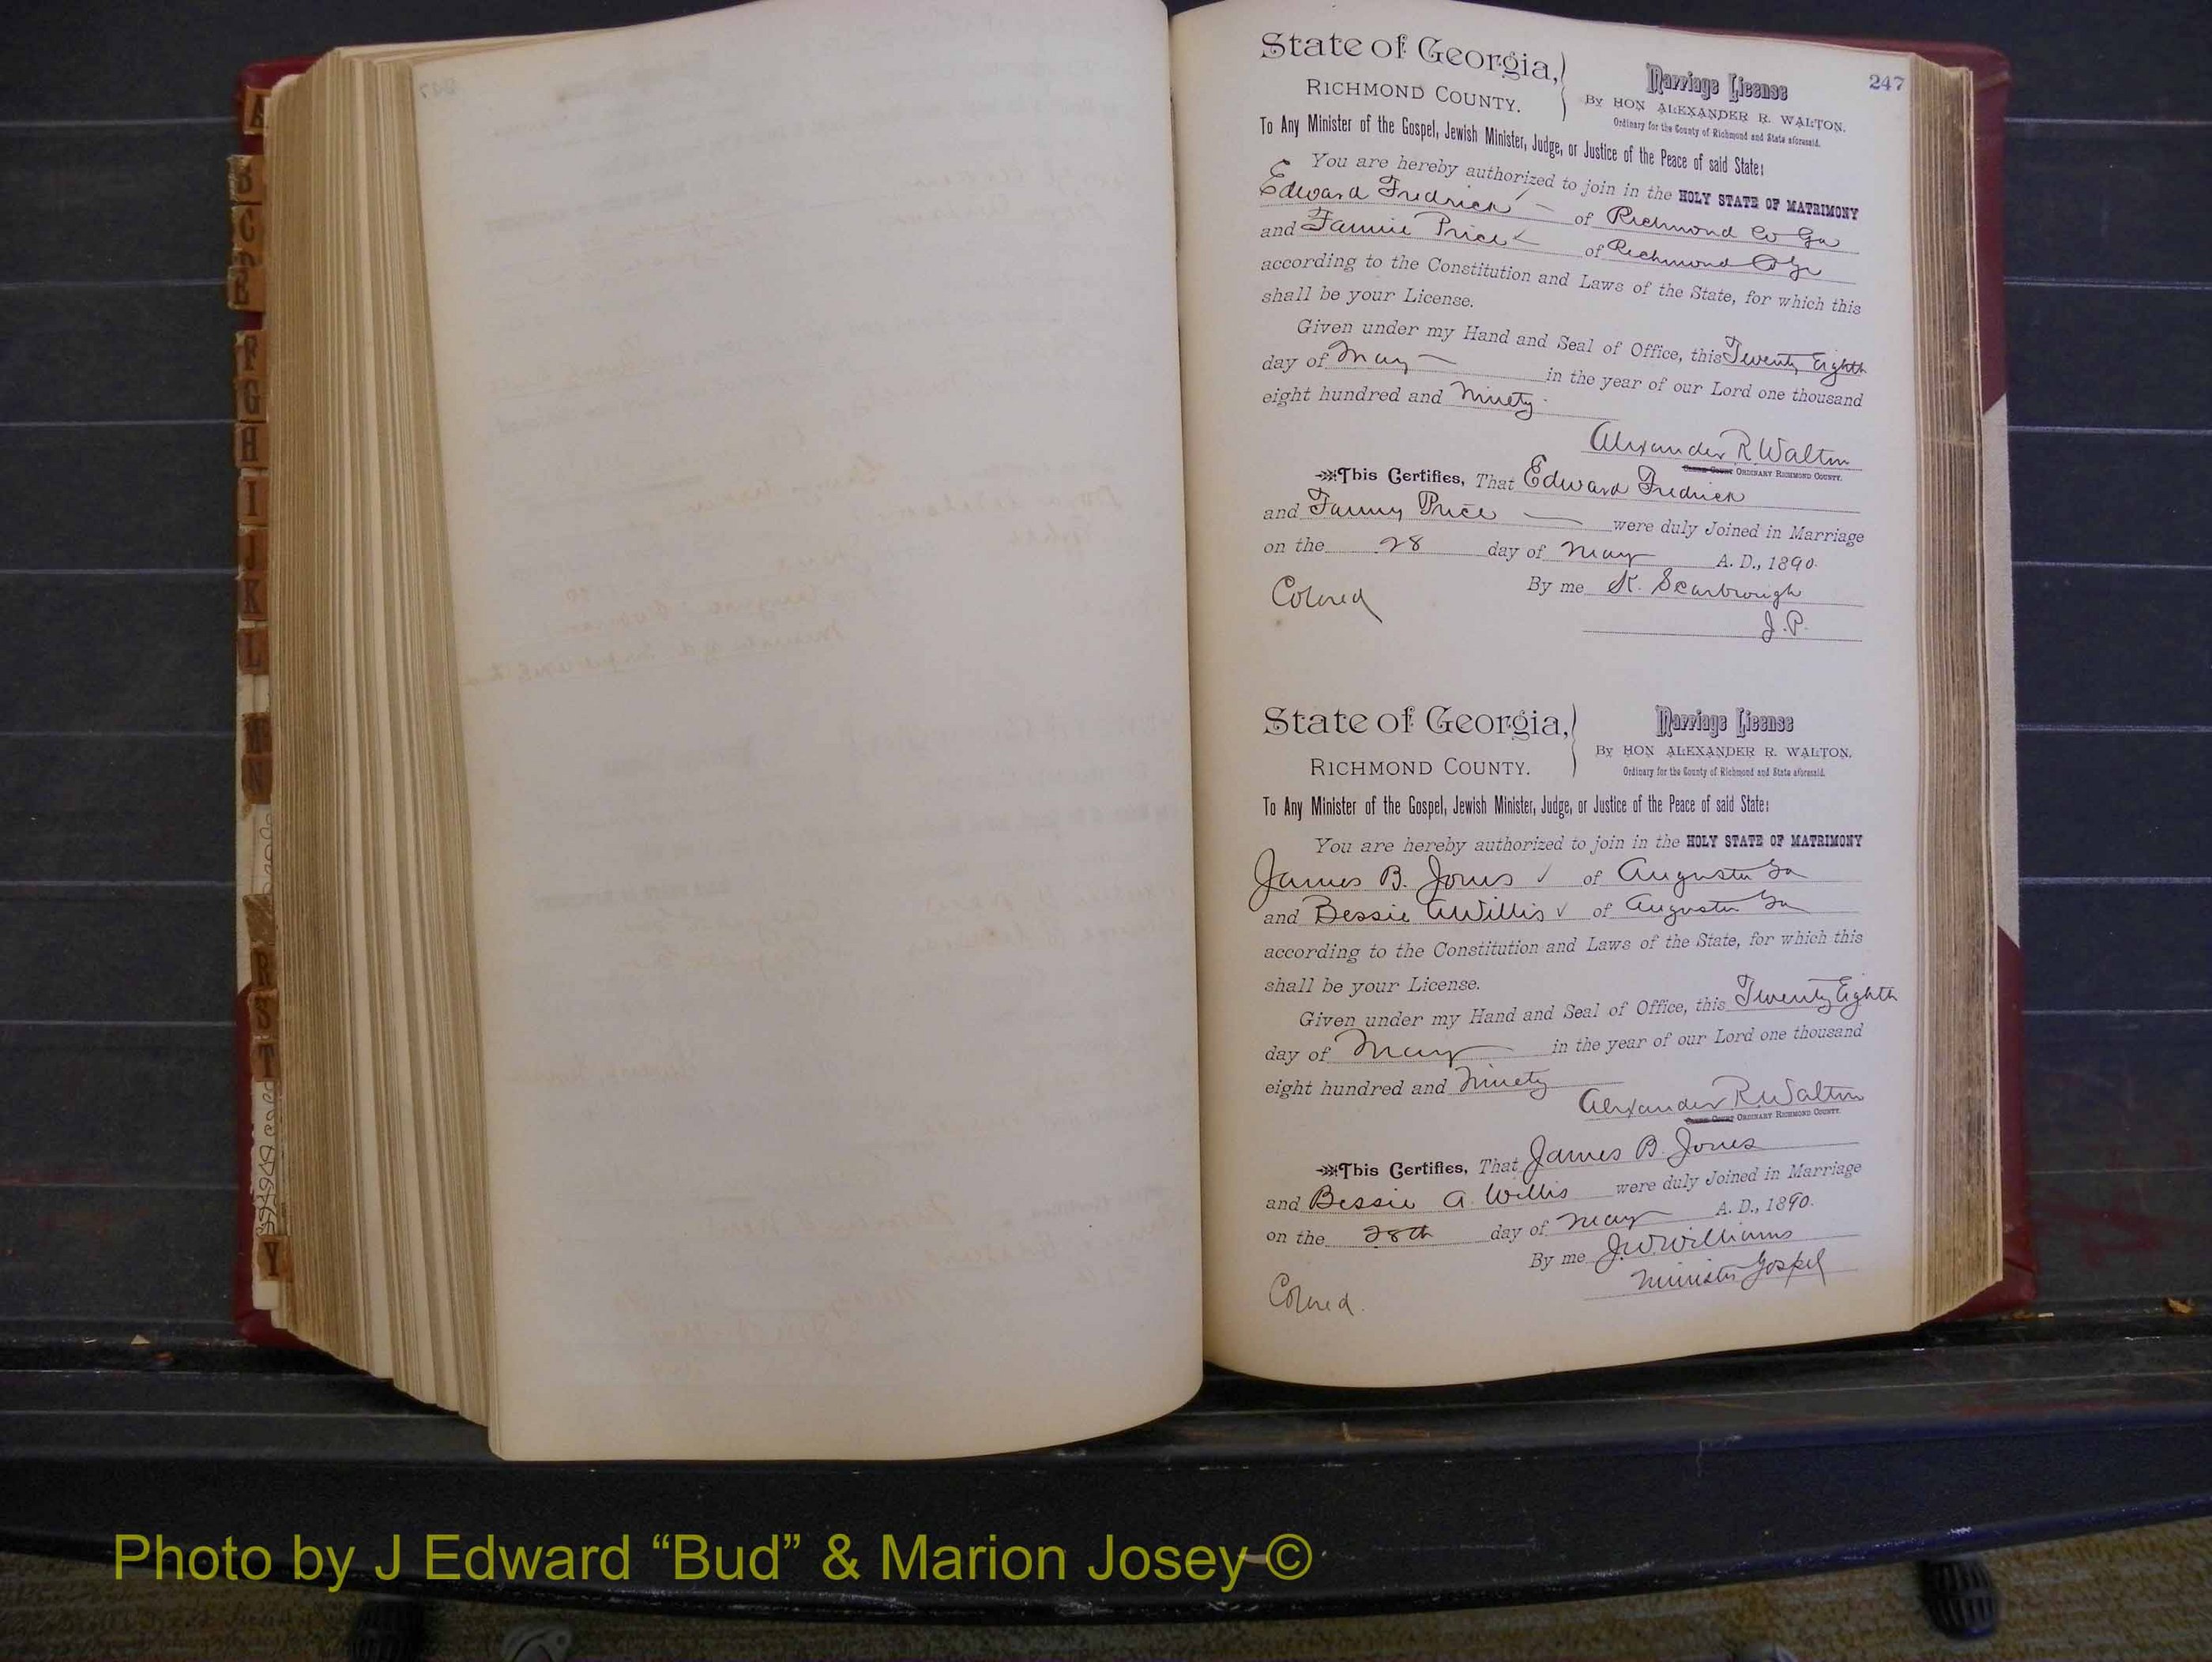 A
B
C
F
G
H
I
J
K
L
N
R
S
T
Y
247
State of Georgia,
RICHMOND COUNTY.
Marriage License
By HON ALEXANDER R. WALTON.
Ordinary for the County of Richmond and State aforesaid.
To Any Minister of the Gospel, Jewish Minister, Judge, or Justice of the Peace of said State:
You are hereby authorized to join in the HOLY STATE OF MATRIMONY
Edward Fredrick of Richmond Co Ga
and Fannie Price of Richmond Co Ga
according to the Constitution and Laws of the State, for which this
shall be your License.
Given under my Hand and Seal of Office, this Twenty Eighth
day of May in the year of our Lord one thousand
eight hundred and Ninety
Alexander R Walton
ORDINARY RICHMOND COUNTY.
This Certifies, That Edward Fredrick
and Fanny Price were duly Joined in Marriage
on the 28 day of May A. D., 1890.
By me K. Scarbrough
J.P.
Colored
State of Georgia,
RICHMOND COUNTY.
Marriage License
By HON ALEXANDER R. WALTON.
Ordinary for the County of Richmond and State aforesaid.
To Any Minister of the Gospel, Jewish Minister, Judge, or Justice of the Peace of said State:
You are hereby authorized to join in the HOLY STATE OF MATRIMONY
James B. Jones ✓ of Augusta Ga
and Bessie A Willis ✓ of Augusta Ga
according to the Constitution and Laws of the State, for which this
shall be your License.
Given under my Hand and Seal of Office, this Twenty Eighth
day of May in the year of our Lord one thousand
eight hundred and Ninety
Alexander R. Walton
ORDINARY RICHMOND COUNTY.
This Certifies, That James B. Jones
and Bessie A. Willis were duly Joined in Marriage
on the 28th day of May A. D., 1890.
By me J.W. Williams
Minister Gospel
Colored.
Photo by J Edward “Bud” & Marion Josey ©